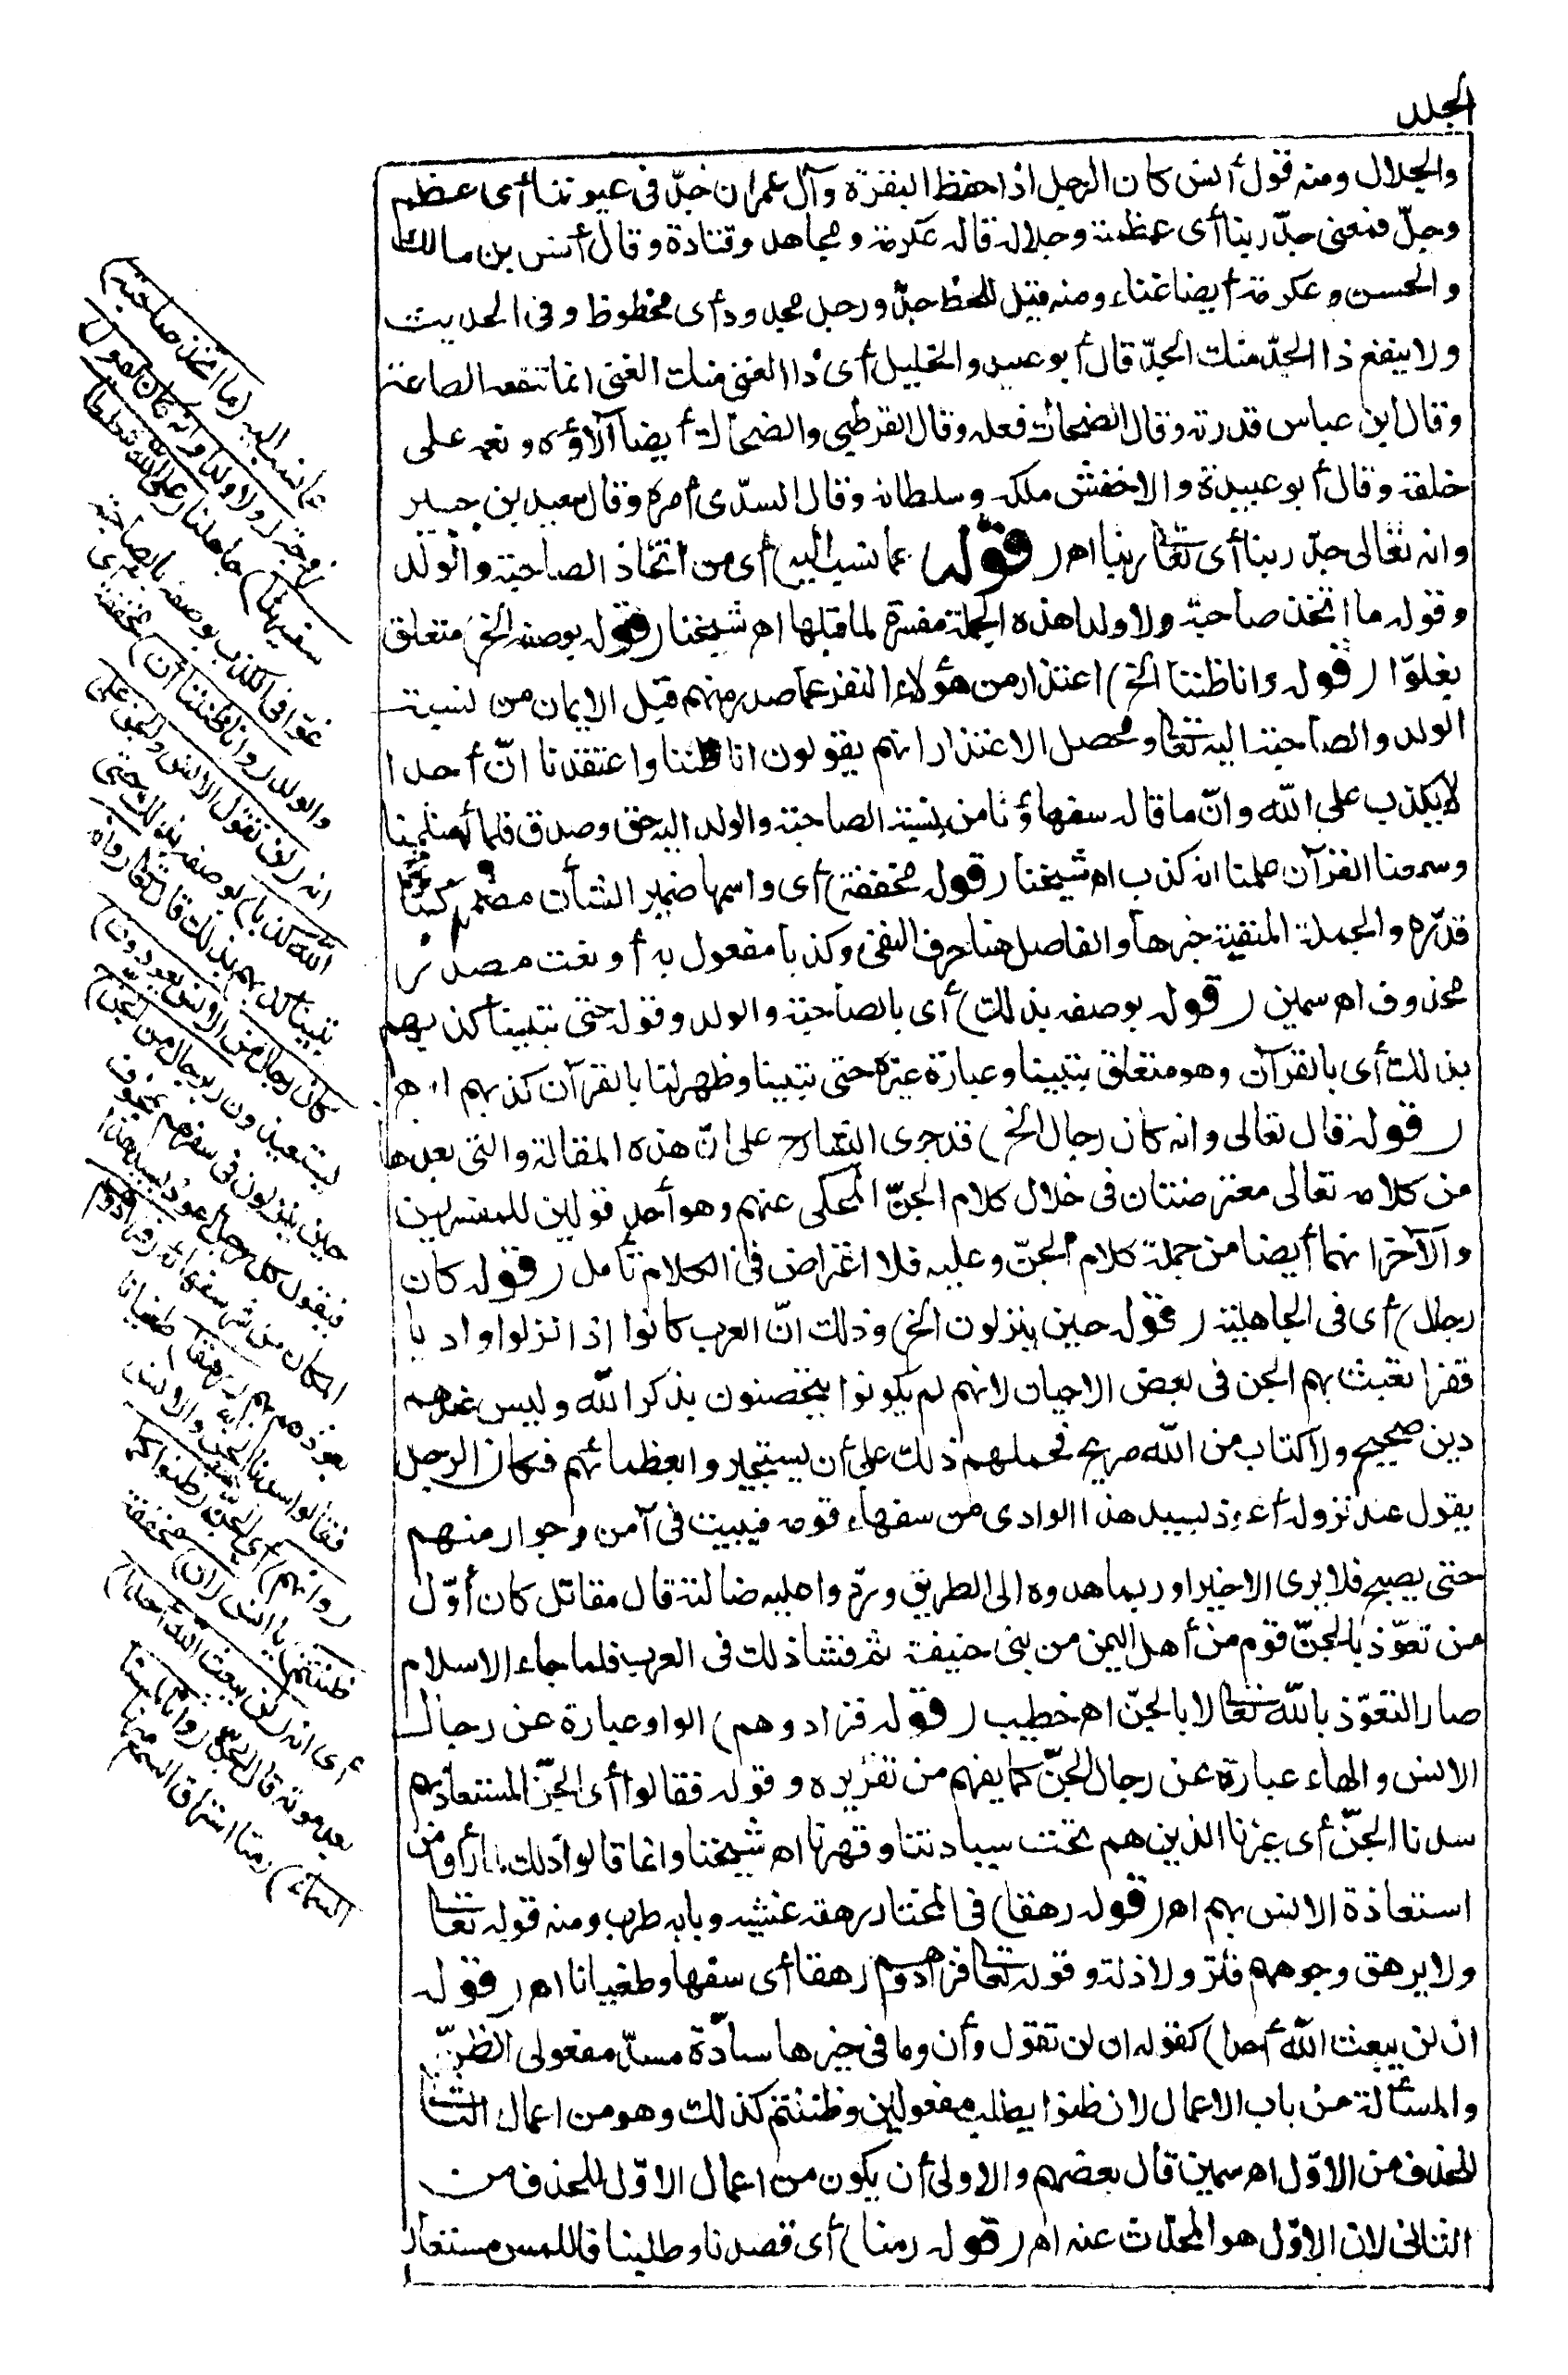 الجلد
والجلال ومنه قول أنس كان الرجل اذا حفظ البقرة وآل عمران جدّ فى عيوننا أى عظم
وجلّ فمعنى جدّ ربنا أى عظمته وجلاله قاله عكرمة ومجاهد وقتادة وقال أنس بن مالك
والحسن وعكرمة أيضا غناء ومنه قيل للحظ جدّ ورجل مجدود أى محظوظ وفى الحديث
ولا ينفع ذا الجدّ منك الجدّ قال أبو عبيد والخليل أى ذا الغنى منك الغنى انما تنفعه الطاعة
وقال ابن عباس قدرته وقال الضحاك فعله وقال القرطبى والضحاك أيضا آلاؤه ونعمه على
خلقه وقال أبو عبيدة والاخفش ملكه وسلطانه وقال السدّى أمره وقال سعيد بن جبير
وانه تعالى جدّ ربنا أى تعالى ربنا اهـ (قوله عما نسب اليه) أى من اتخاذ الصاحبة والولد
وقوله ما اتخذ صاحبة ولا ولدا هذه الجملة مفسرة لما قبلها اهـ شيخنا (قوله بوصفه الخ) متعلق
بغلوّا (قوله وانا ظننا الخ) اعتذار من هؤلاء النفر عما صدر منهم قبل الايمان من نسبة
الولد والصاحبة اليه تعالى ومحصل الاعتذار انهم يقولون انا ظننا واعتقدنا انّ أحدا
لا يكذب على الله وانّ ما قاله سفهاؤنا من نسبة الصاحبة والولد اليه حق وصدق فلما أسلمنا
وسمعنا القرآن علمنا انه كذب اهـ شيخنا (قوله مخففة) أى واسمها ضمير الشأن مضمر
قدّره والجملة المنفية خبرها والفاصل هنا حرف النفى وكذبا مفعول به أو نعت مصدر
محذوف اهـ سمين (قوله بوصفه بذلك) أى بالصاحبة والولد وقوله حتى تبينا كذبهم
بذلك أى بالقرآن وهو متعلق بتبينا وعبارة غيره حتى تبينا وظهر لنا بالقرآن كذبهم اهـ
(قوله قال تعالى وانه كان رجال الخ) قد جرى الشارح على انّ هذه المقالة والتى بعدها
من كلامه تعالى معترضتان فى خلال كلام الجنّ المحكى عنهم وهو أحد قولين للمفسرين
والآخر انهما أيضا من جملة كلام الجنّ وعليه فلا اعتراض فى الكلام تأمل (قوله كان
رجال) أى فى الجاهلية (قوله حين ينزلون الخ) وذلك انّ العرب كانوا اذا نزلوا واديا
قفرا تعبث بهم الجن فى بعض الاحيان لانهم لم يكونوا يتحصنون بذكر الله وليس عندهم
دين صحيح ولا كتاب من الله صريح فحملهم ذلك على أن يستجيروا بعظمائهم فكان الرجل
يقول عند نزوله أعوذ بسيد هذا الوادى من سفهاء قومه فيبيت فى آمن وجوار منهم
حتى يصبح فلا يرى الا خيرا وربما هدوه الى الطريق وردّوا عليه ضالته قال مقاتل كان أوّل
من تعوّذ بالجنّ قوم من أهل اليمن من بنى حنيفة ثم فشا ذلك فى العرب فلما جاء الاسلام
صار التعوّذ بالله تعالى لا بالجنّ اهـ خطيب (قوله فزادوهم) الواو عبارة عن رجال
الانس والهاء عبارة عن رجال الجنّ كما يفهم من تقريره وقوله فقالوا أى الجنّ المستعاذ بهم
سدنا الجنّ أى غيرنا الذين هم تحت سيادتنا وقهرنا اهـ شيخنا وانما قالوا ذلك لما رأوا من
استعاذة الانس بهم اهـ (قوله رهقا) فى المختار رهقه غشيه وبابه طرب ومنه قوله تعالى
ولا يرهق وجوههم قتر ولا ذلة وقوله تعالى فزادوهم رهقا أى سفها وطغيانا اهـ (قوله
ان لن يبعث الله أحدا) كقوله ان لن تقول وأن وما فى خبرها سادّة مسدّ مفعولى الظنّ
والمسألة من باب الاعمال لان ظنوا يطلب مفعولين وظننتم كذلك وهو من اعمال الثانى
للحذف من الاوّل اهـ سمين قال بعضهم والاولى أن يكون من اعمال الاوّل للحذف من
الثانى لان الاوّل هو المحدّث عنه اهـ (قوله رمنا) أى قصدنا وطلبنا فاللمس مستعار
عما نسب اليه (ما اتخذ صاحبة)
زوجة (ولا ولدا وانه كان يقول
سفيهنا) جاهلنا (على الله شططا)
غلوّا فى الكذب بوصفه بالصاحبة
والولد (وانا ظننا أن) مخففة أى
انه (لن تقول الانس والجن على
الله كذبا) بوصفه بذلك حتى
تبينا كذبهم بذلك قال تعالى (وانه
كان رجال من الانس يعوذون)
يستعيذون (برجال من الجن)
حين ينزلون فى سفرهم بمخوف
فيقول كل رجل أعوذ بسيد هذا
المكان من شر سفهائه (فزادوهم)
بعوذهم بهم (رهقا) طغيانا
فقالوا سدنا الجن والانس
(وانهم) أى الجنّ (ظنوا كما
ظننتم) يا انس (ان) مخففة
أى انه (لن يبعث الله أحدا)
بعد موته قال الجنّ (وانا لمسنا
السماء) رمنا استراق السمع منها